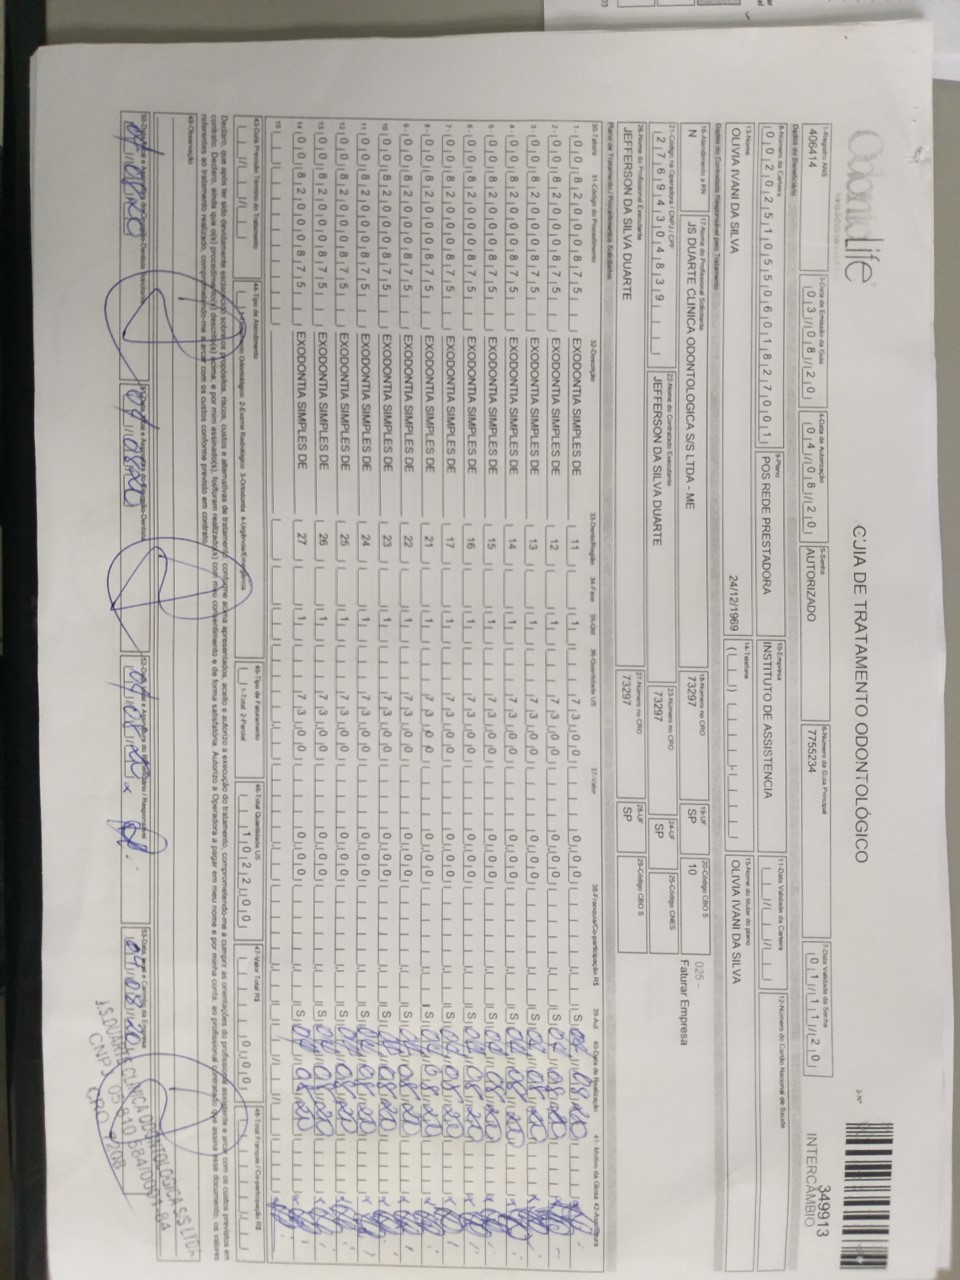 OdontoLife
GUIA DE TRATAMENTO ODONTOLÓGICO
2-Nº
349913
INTERCÂMBIO
1-Registro ANS
406414
3-Data de Emissão da Guia
03/08/20
4-Data de Autorização
04/08/20
5-Senha
AUTORIZADO
6-Número da Guia Principal
7755234
7-Data Validade da Senha
01/11/20
Dados do Beneficiário
8-Número da Carteira
00202510550601827001
9-Plano
POS REDE PRESTADORA
10-Empresa
INSTITUTO DE ASSISTENCIA
11-Data Validade da Carteira
12-Número do Cartão Nacional de Saúde
13-Nome
OLIVIA IVANI DA SILVA
24/12/1969
14-Telefone
15-Nome do titular do plano
OLIVIA IVANI DA SILVA
Dados do Contratado Responsável pelo Tratamento
16-Atendimento a RN
N
17-Nome do Profissional Solicitante
JS DUARTE CLINICA ODONTOLOGICA S/S LTDA - ME
18-Número no CRO
73297
19-UF
SP
20-Código CBO S
10
025 -
Faturar Empresa
21-Código na Operadora / CNPJ / CPF
27694304839
22-Nome do Contratado Executante
JEFFERSON DA SILVA DUARTE
23-Número no CRO
73297
24-UF
SP
25-Código CNES
26-Nome do Profissional Executante
JEFFERSON DA SILVA DUARTE
27-Número no CRO
73297
28-UF
SP
29-Código CBO S
Plano de Tratamento / Procedimentos Solicitados
30-Tabela 31-Código do Procedimento 32-Descrição 33-Dente/Região 34-Face 35-Qtd 36-Quantidade US 37-Valor 38-Franquia/Co-participação R$ 39-Aut 40-Data de Realização 41-Motivo da Glosa 42-Assinatura
1- 00 82000875 EXODONTIA SIMPLES DE 11 1 73 00 0 00 S 04/08/20
2- 00 82000875 EXODONTIA SIMPLES DE 12 1 73 00 0 00 S 04/08/20
3- 00 82000875 EXODONTIA SIMPLES DE 13 1 73 00 0 00 S 04/08/20
4- 00 82000875 EXODONTIA SIMPLES DE 14 1 73 00 0 00 S 04/08/20
5- 00 82000875 EXODONTIA SIMPLES DE 15 1 73 00 0 00 S 04/08/20
6- 00 82000875 EXODONTIA SIMPLES DE 16 1 73 00 0 00 S 04/08/20
7- 00 82000875 EXODONTIA SIMPLES DE 17 1 73 00 0 00 S 04/08/20
8- 00 82000875 EXODONTIA SIMPLES DE 21 1 73 00 0 00 S 04/08/20
9- 00 82000875 EXODONTIA SIMPLES DE 22 1 73 00 0 00 S 04/08/20
10 00 82000875 EXODONTIA SIMPLES DE 23 1 73 00 0 00 S 04/08/20
11 00 82000875 EXODONTIA SIMPLES DE 24 1 73 00 0 00 S 04/08/20
12 00 82000875 EXODONTIA SIMPLES DE 25 1 73 00 0 00 S 04/08/20
13 00 82000875 EXODONTIA SIMPLES DE 26 1 73 00 0 00 S 04/08/20
14 00 82000875 EXODONTIA SIMPLES DE 27 1 73 00 0 00 S 04/08/20
15
43-Data Previsão Término do Tratamento
44-Tipo de Atendimento
Odontológico 2-Exame Radiológico 3-Ortodontia 4-Urgência/Emergência
45-Tipo de Faturamento
1-Total 2-Parcial
46-Total Quantidade US
1022 00
47-Valor Total R$
0 00
48-Total Franquia / Co-participação R$
Declaro, que após ter sido devidamente esclarecido sobre os propósitos, riscos, custos e alternativas de tratamento, conforme acima apresentados, aceito e autorizo a execução do tratamento, comprometendo-me a cumprir as orientações do profissional assistente e arcar com os custos previstos em
contrato. Declaro, ainda que o(s) procedimento(s) descrito(s) acima, e por mim assinado(s), foi/foram realizado(s) com meu consentimento e de forma satisfatória. Autorizo a Operadora a pagar em meu nome e por minha conta, ao profissional contratado que assina esse documento, os valores
referentes ao tratamento realizado, comprometendo-me a arcar com os custos conforme previsto em contrato.
49-Observação
04/08/20
04/08/20
04/08/20
04/08/20
J.S. DUARTE CLINICA ODONTOLOGICA S.S. LTDA
CNPJ
CRO